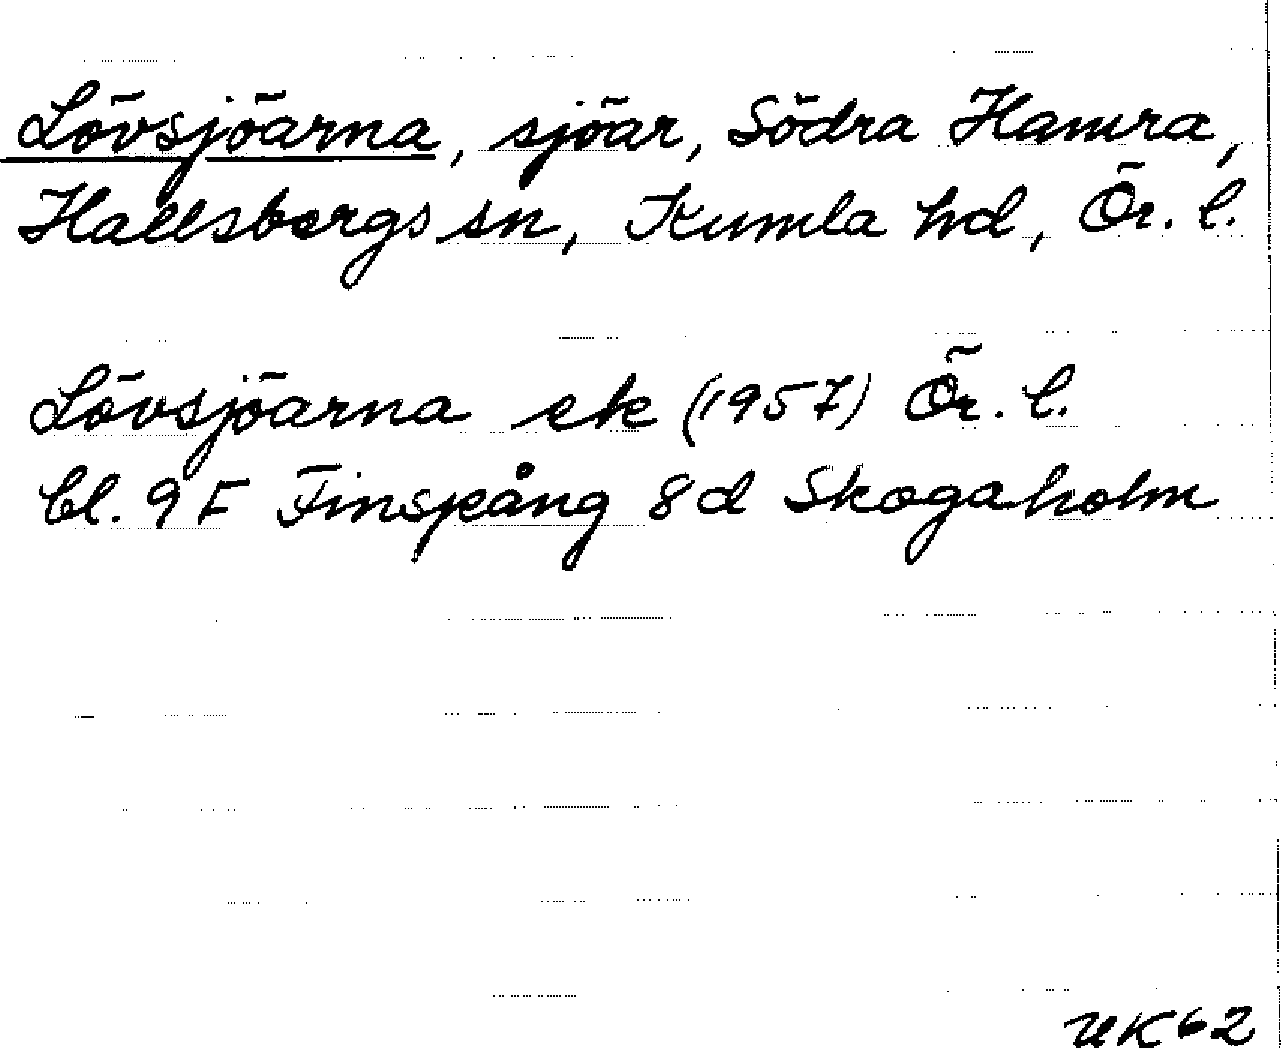 Lövsjöarna, sjöar, Södra Hamra,
Hallsbergs sn, Kumla hd, Ör. l.
Lövsjöarna ek (1957) Ör. l.
bl. 9F Finspång 8d Skogaholm
UK62